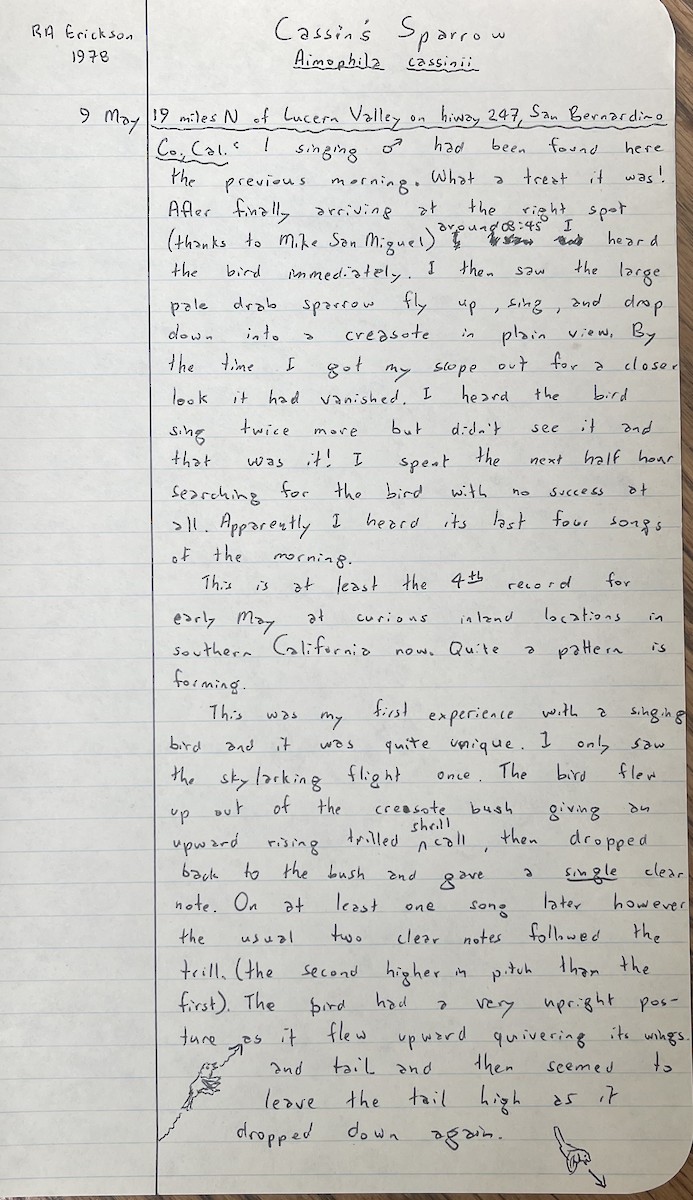 RA Erickson
1978
Cassin's Sparrow
Aimophila cassinii
9 May 19 miles N of Lucern Valley on hiway 247, San Bernardino
Co., Cal.: 1 singing ♂ had been found here
the previous morning. What a treat it was!
After finally arriving at the right spot
(thanks to Mike San Miguel) around 08:45 I heard
the bird immediately. I then saw the large
pale drab sparrow fly up, sing, and drop
down into a creasote in plain view. By
the time I got my scope out for a closer
look it had vanished. I heard the bird
sing twice more but didn't see it and
that was it! I spent the next half hour
searching for the bird with no success at
all. Apparently I heard its last four songs
of the morning.
This is at least the 4th record for
early May at curious inland locations in
southern California now. Quite a pattern is
forming.
This was my first experience with a singing
bird and it was quite unique. I only saw
the skylarking flight once. The bird flew
up out of the creasote bush giving an
upward rising trilled shrill call, then dropped
back to the bush and gave a single clear
note. On at least one song later however
the usual two clear notes followed the
trill. (the second higher in pitch than the
first). The bird had a very upright pos-
ture as it flew upward quivering its wings
and tail and then seemed to
leave the tail high as it
dropped down again.